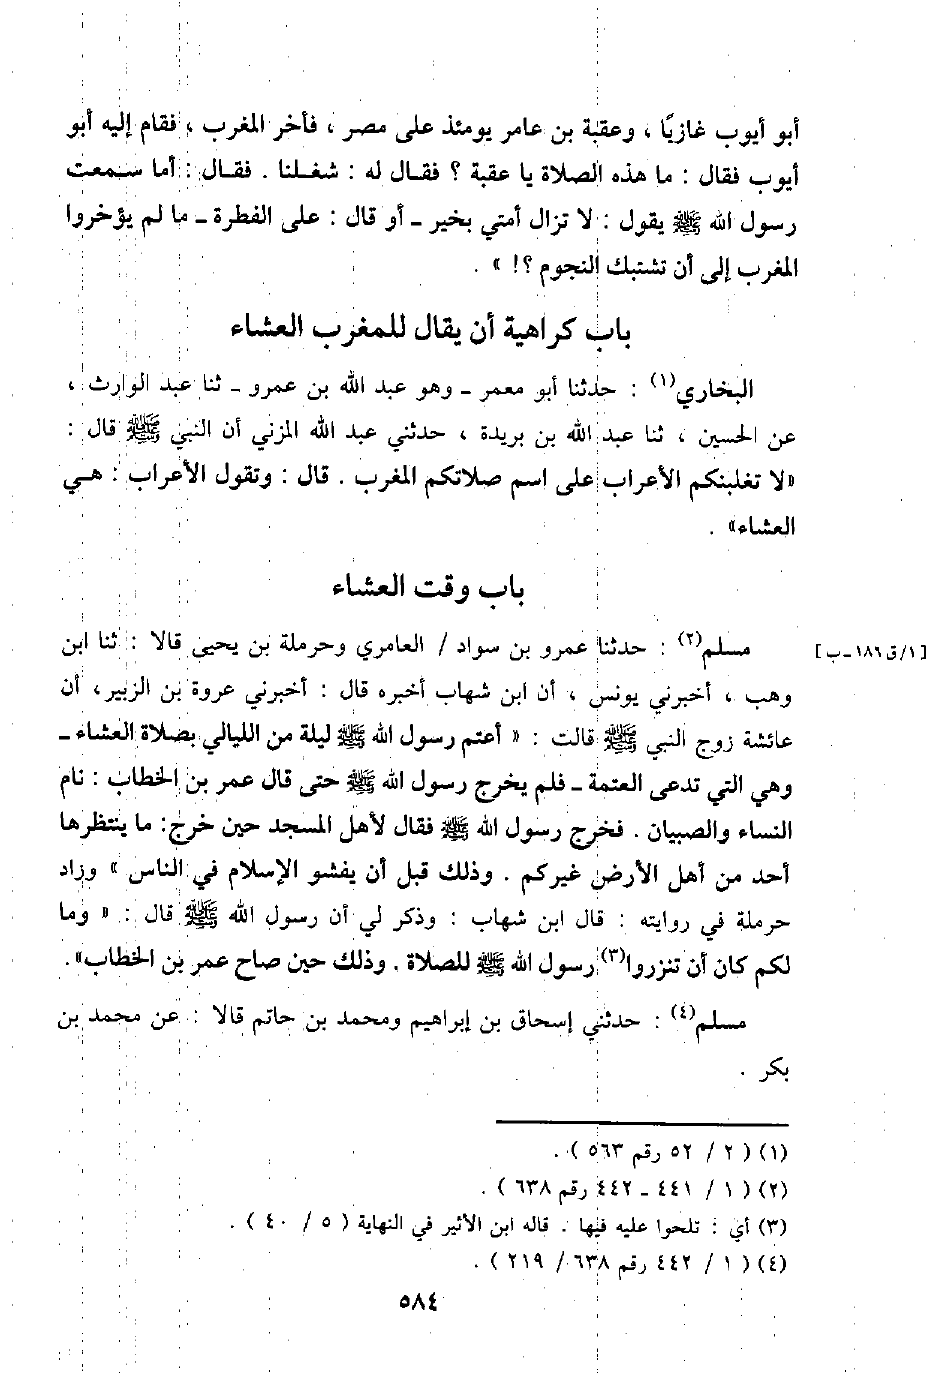 أبو أيوب غازيًا ، وعقبة بن عامر يومئذ على مصر ، فأخر المغرب ، فقام إليه أبو
أيوب فقال : ما هذه الصلاة يا عقبة ؟ فقال له : شغلنا . فقال : أما سمعت
رسول الله ﷺ يقول : لا تزال أمتي بخير ـ أو قال : على الفطرة ـ ما لم يؤخروا
المغرب إلى أن تشتبك النجوم ؟! » .
باب كراهية أن يقال للمغرب العشاء
البخاري(١) : حدثنا أبو معمر ـ وهو عبد الله بن عمرو ـ ثنا عبد الوارث ،
عن الحسين ، ثنا عبد الله بن بريدة ، حدثني عبد الله المزني أن النبي ﷺ قال :
«لا تغلبنكم الأعراب على اسم صلاتكم المغرب . قال : وتقول الأعراب : هي
العشاء» .
باب وقت العشاء
مسلم(٢) : حدثنا عمرو بن سواد / العامري وحرملة بن يحيى قالا : ثنا ابن [١/ق١٨٦ـب]
وهب ، أخبرني يونس ، أن ابن شهاب أخبره قال : أخبرني عروة بن الزبير، أن
عائشة زوج النبي ﷺ قالت : « أعتم رسول الله ﷺ ليلة من الليالي بصلاة العشاء ـ
وهي التي تدعى العتمة ـ فلم يخرج رسول الله ﷺ حتى قال عمر بن الخطاب : نام
النساء والصبيان . فخرج رسول الله ﷺ فقال لأهل المسجد حين خرج: ما ينتظرها
أحد من أهل الأرض غيركم . وذلك قبل أن يفشو الإسلام في الناس » وزاد
حرملة في روايته : قال ابن شهاب : وذكر لي أن رسول الله ﷺ قال : « وما
لكم كان أن تنزروا(٣) رسول الله ﷺ للصلاة . وذلك حين صاح عمر بن الخطاب».
مسلم(٤) : حدثني إسحاق بن إبراهيم ومحمد بن حاتم قالا : عن محمد بن
بكر .
(١) ( ٢ / ٥٢ رقم ٥٦٣ ) .
(٢) ( ١ / ٤٤١ ـ ٤٤٢ رقم ٦٣٨ ) .
(٣) أي : تلحوا عليه فيها . قاله ابن الأثير في النهاية ( ٥ / ٤٠ ) .
(٤) ( ١ / ٤٤٢ رقم ٦٣٨ / ٢١٩ ) .
٥٨٤